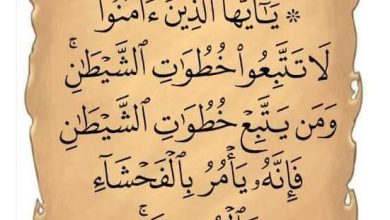 * يَـٰٓأَيُّهَا ٱلَّذِينَ ءَامَنُوا۟
لَا تَتَّبِعُوا۟ خُطُوَٰتِ ٱلشَّيْطَـٰنِ ۚ
وَمَن يَتَّبِعْ خُطُوَٰتِ ٱلشَّيْطَـٰنِ
فَإِنَّهُۥ يَأْمُرُ بِٱلْفَحْشَآءِ